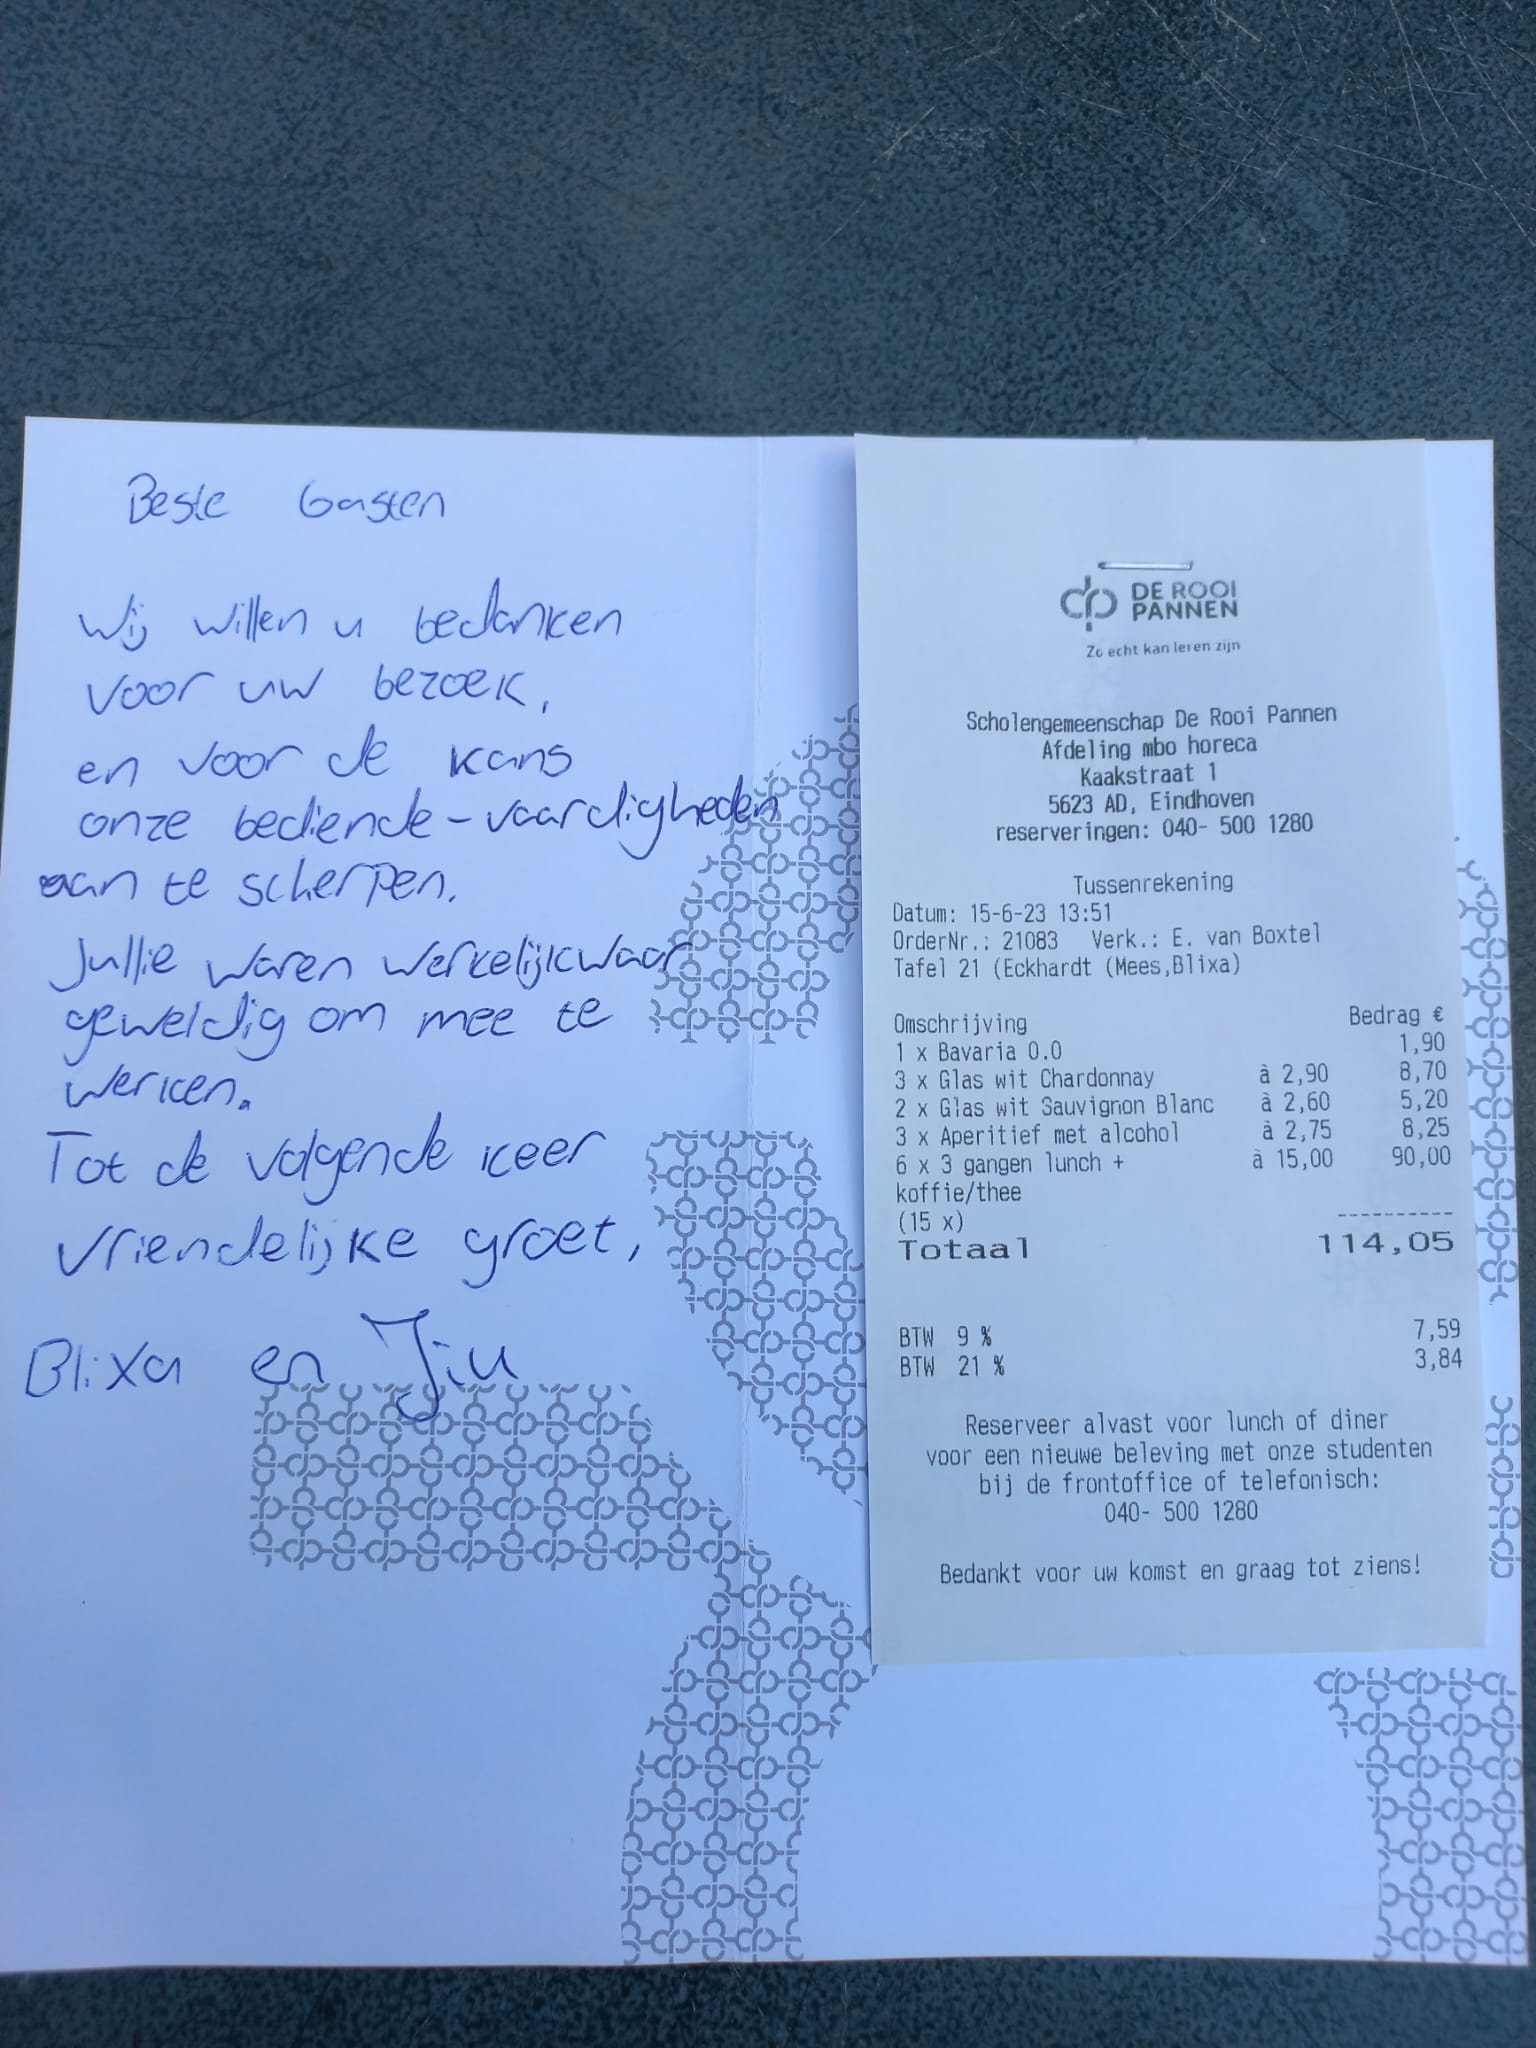 Beste Gasten
Wij willen u bedanken
voor uw bezoek,
en voor de kans
onze bediende-vaardigheden
aan te scherpen.
Jullie waren werkelijkwaar
geweldig om mee te
werken.
Tot de volgende keer
vriendelijke groet,
Blixa en Jiu
DE ROOI
PANNEN
Zo echt kan leren zijn
Scholengemeenschap De Rooi Pannen
Afdeling mbo horeca
Kaakstraat 1
5623 AD, Eindhoven
reserveringen: 040- 500 1280
Tussenrekening
Datum: 15-6-23 13:51
OrderNr.: 21083 Verk.: E. van Boxtel
Tafel 21 (Eckhardt (Mees,Blixa)
Omschrijving Bedrag €
1 x Bavaria 0.0 1,90
3 x Glas wit Chardonnay à 2,90 8,70
2 x Glas wit Sauvignon Blanc à 2,60 5,20
3 x Aperitief met alcohol à 2,75 8,25
6 x 3 gangen lunch + à 15,00 90,00
koffie/thee
(15 x)
Totaal 114,05
BTW 9 % 7,59
BTW 21 % 3,84
Reserveer alvast voor lunch of diner
voor een nieuwe beleving met onze studenten
bij de frontoffice of telefonisch:
040- 500 1280
Bedankt voor uw komst en graag tot ziens!